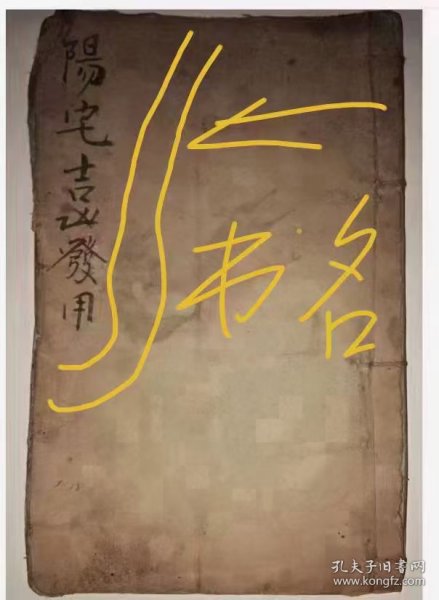 陽宅吉凶發用
书名
孔夫子旧书网
www.kongfz.com